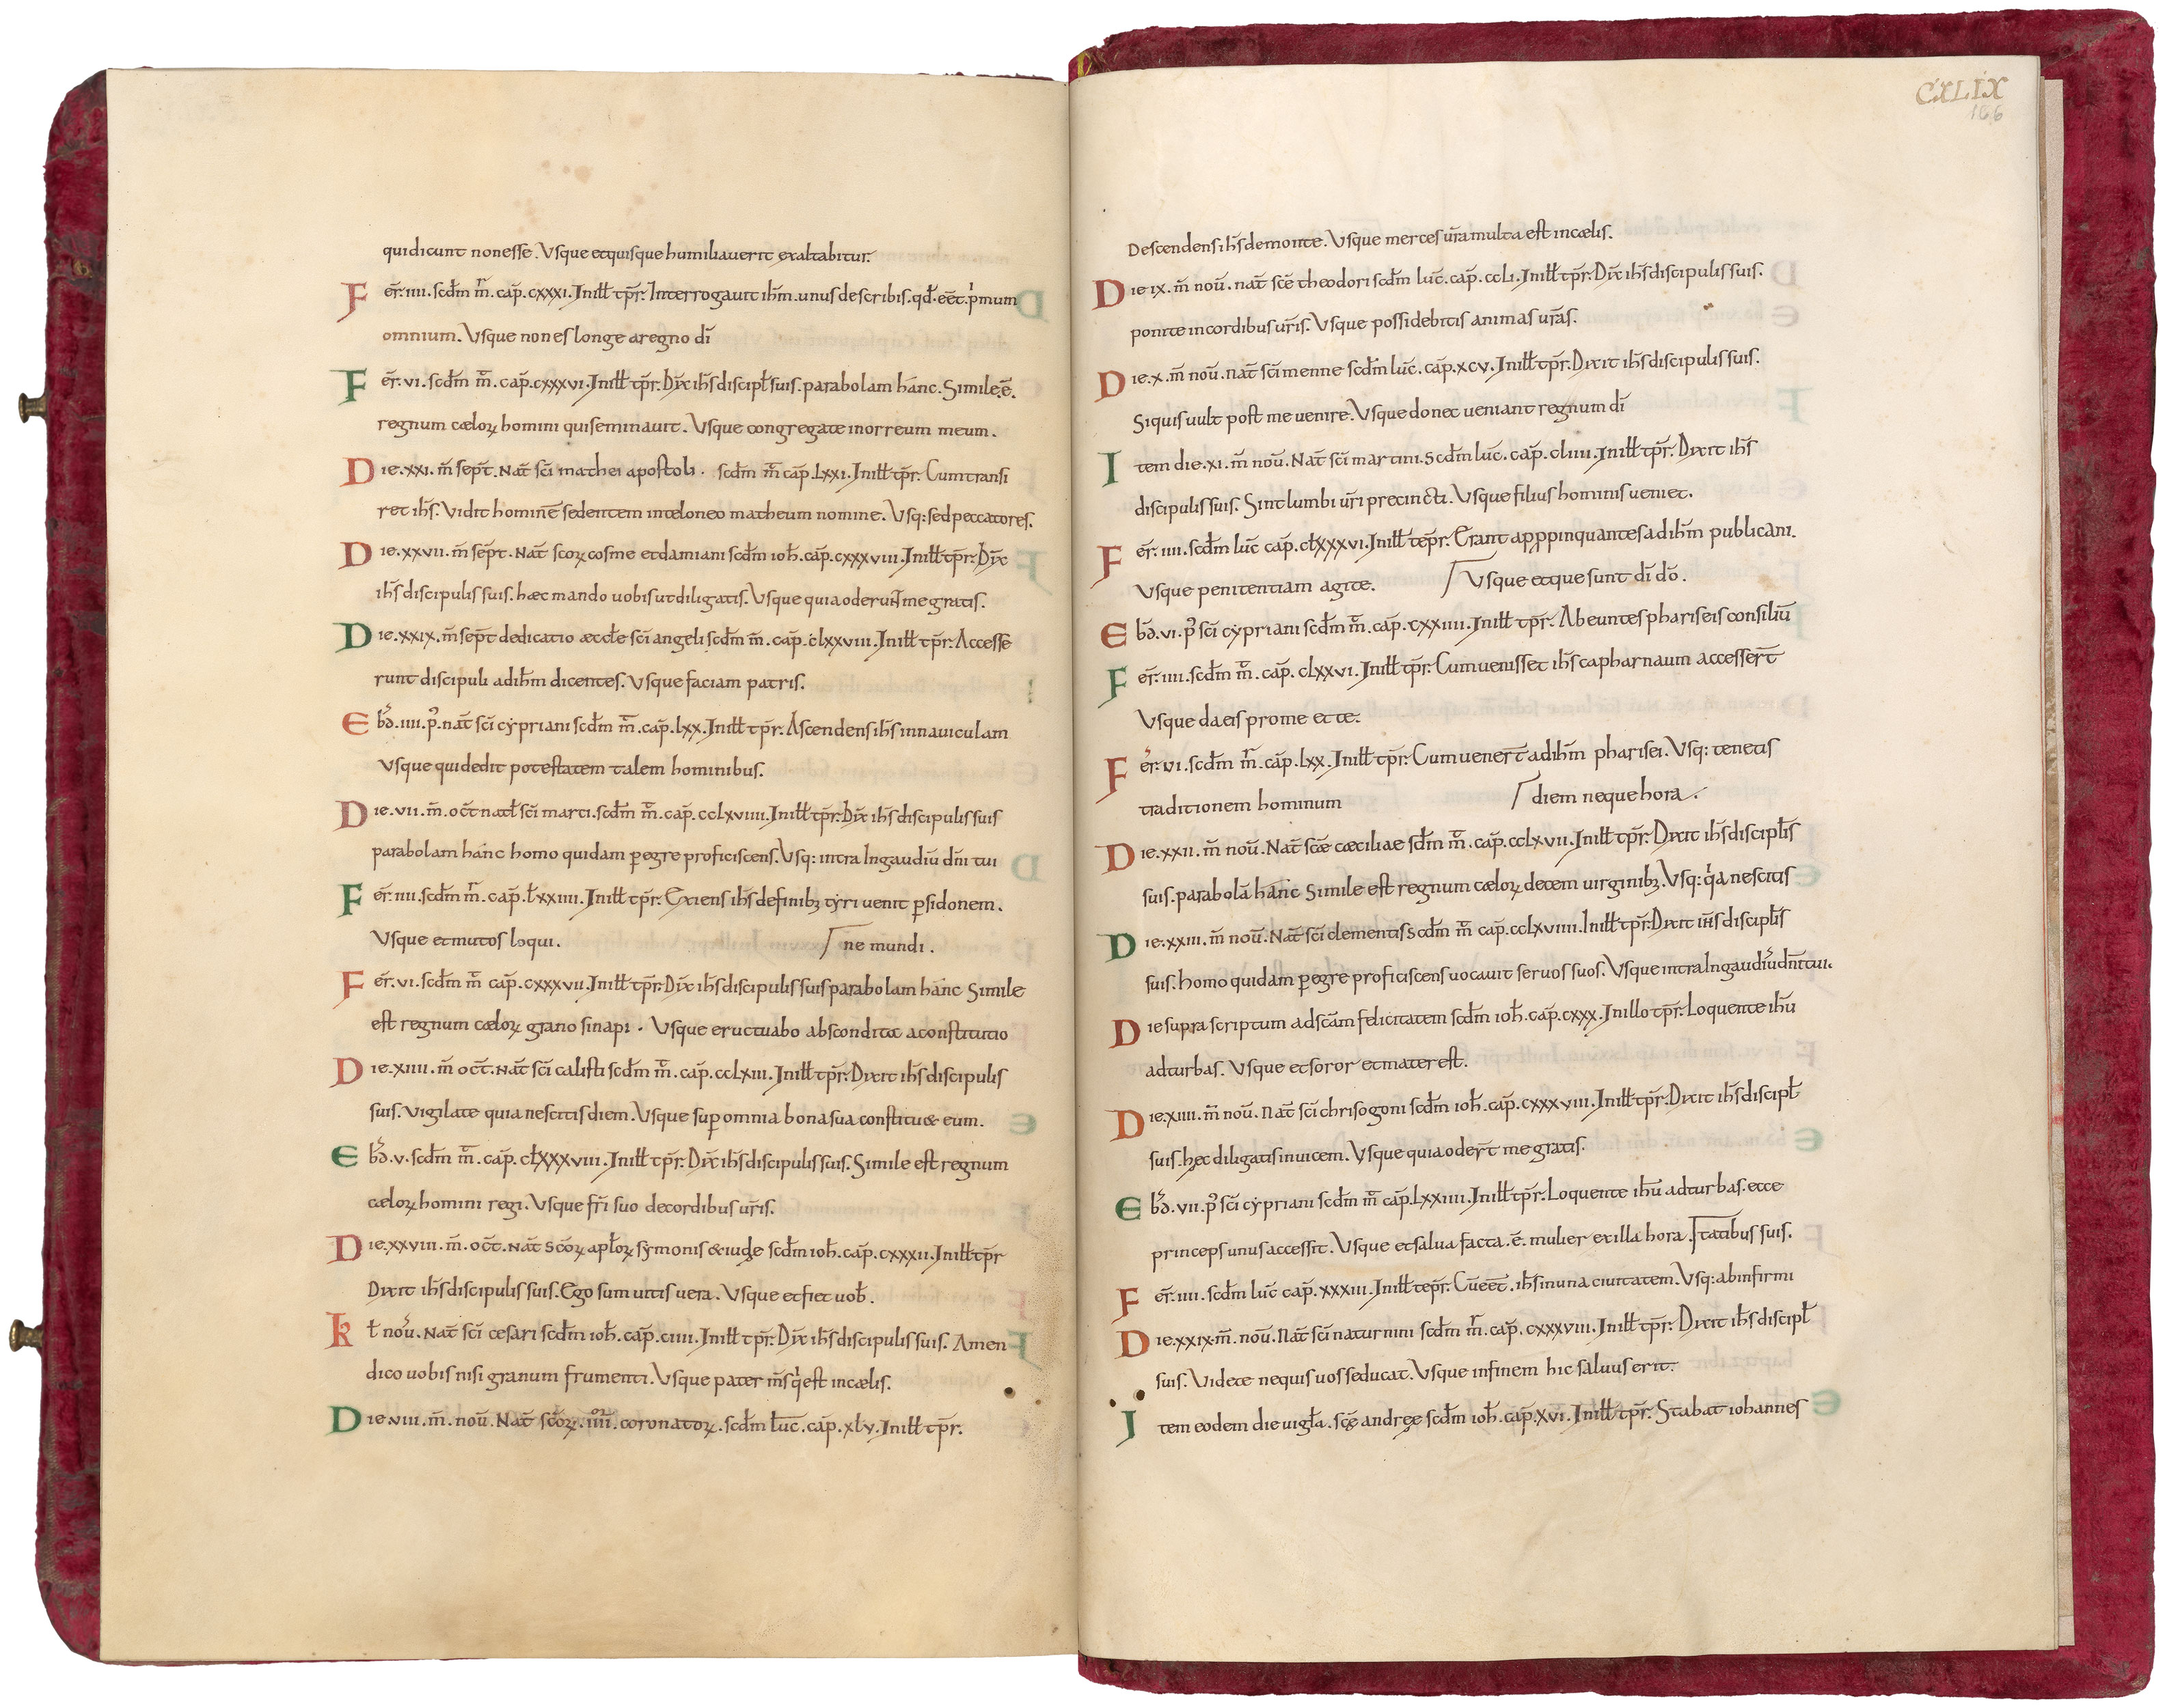 qui dicunt non esse. Vsque et qui se humiliauerit exaltabitur.
Fer̄. IIII. scd̄m m̄r. cap̄. CXXXI. Jnill̄ tp̄r. Interrogauit ih̄m. unus de scribis. qd̄. eēt. pͥmum
omnium. Vsque non es longe a regno dī
Fer̄. VI. scd̄m m̄t. cap̄. CXXXVI. Jnill̄ tp̄r. Dix̄ ih̄s discipl̄ suis. parabolam hanc. Simile. ē.
regnum cæloꝝ homini qui seminauit. Vsque congregate in orreum meum.
Die. XXI. m̄ sept̄. Nat̄ sc̄i mathei apostoli. scd̄m m̄t cap̄. LXXI. Jnill̄ tp̄r. Cum transi
ret ih̄s. Vidit hominē sedentem in teloneo matheum nomine. Vsq: sed peccatores.
Die. XXVII. m̄ sept̄. Nat̄ sc̄oꝝ cosme et damiani scd̄m ioh̄. cap̄. CXXXVIII. Jnill̄ tp̄r. Dix̄
ih̄s discipulis suis. hæc mando uobis ut diligatis. Vsque quia oderuN̄ me gratis.
Die. XXIX. m̄ sept̄ dedicatio æccl̄e sc̄i angeli scd̄m m̄t. cap̄. CLXXVIII. Jnill̄ tp̄r. Accesse
runt discipuli ad ih̄m dicentes. Vsque faciam patris.
Ebd̄. IIII. p̄. nat̄ sc̄i cypriani scd̄m m̄t. cap̄. LXX. Jnill̄ tp̄r. Ascendens ih̄s in nauiculam
Vsque qui dedit potestatem talem hominibus.
Die. VII. m̄. oct̄ natl̄ sc̄i marci. scd̄m m̄t. cap̄. CCLXVIIII. Jnill̄ tp̄r. Dix̄ ih̄s discipulis suis
parabolam hanc homo quidam ꝑegre proficiscens. Vsq: intra Jn gaudiū dn̄i tui
Fer̄. IIII. scd̄m m̄r. cap̄. LXXIIII. Jnill̄ tp̄r. Exiens ih̄s de finibꝫ tyri uenit ꝑ sidonem.
Vsque et mutos loqui. ne mundi.
Fer̄. VI. scd̄m m̄t cap̄. CXXXVII. Jnill̄ tp̄r. Dix̄ ih̄s discipulis suis parabolam hanc Simile
est regnum cæloꝝ grano sinapi. Vsque eructuabo abscondita a constitutio
Die. XIIII. m̄ oct̄. Nat̄ sc̄i calisti scd̄m m̄t. cap̄. CCLXIII. Jnill̄ tp̄r. Dixit ih̄s discipulis
suis. Vigilate quia nescitis diem. Vsque suꝑ omnia bona sua constitu& eum.
Ebd̄. V. scd̄m m̄t. cap̄. CLXXXVIII. Jnill̄ tp̄r. Dix̄ ih̄s discipulis suis. Simile est regnum
cæloꝝ homini regi. Vsque fr̄i suo de cordibus ur̄is.
Die. XXVIII. m̄. oct̄. Nat̄ Sc̄oꝝ apl̄oꝝ symonis & iudę scd̄m ioh̄. cap̄. CXXXII. Jnill̄ tp̄r
Dixit ih̄s discipulis suis. Ego sum uitis uera. Vsque et fiet uob̄.
kl̄ nou̅. Nat̄ sc̄i cesari scd̄m ioh̄. cap̄. CIIII. Jnill̄ tp̄r. Dix̄ ih̄s discipulis suis. Amen
dico uobis nisi granum frumenti. Vsque pater m̄s qͥ est in cælis.
Die. VIII. m̄. nou̅. Nat̄ sc̄oꝝ. IIII. coronatoꝝ. scd̄m luc̄. cap̄. XLV. Jnill̄ tp̄r.
CXLIX
166
Descendens ih̄s de monte. Vsque merces ur̄a multa est in cælis.
Die IX. m̄ nou̅. nat̄ sc̄e theodori scd̄m luc̄. cap̄. CCLI. Jnill̄ tp̄r. Dix̄ ih̄s discipulis suis.
ponite in cordibus ur̄is. Vsque possidebitis animas ur̄as.
Die. X. m̄ nou̅. nat̄ sc̄i menne scd̄m luc̄. cap̄. XCV. Jnill̄ tp̄r. Dixit ih̄s discipulis suis.
Si quis uult post me uenire. Vsque donec ueniant regnum dī
Item die. XI. m̄ nou̅. Nat̄ sc̄i martini. Scd̄m luc̄. cap̄. CLIIII. Jnill̄ tp̄r. Dixit ih̄s
discipulis suis. Sint lumbi ur̄i precincti. Vsque filius hominis ueniet.
Fer̄. IIII. scd̄m luc̄ cap̄. CLXXXVI. Jnill̄ tep̄r. Erant appꝓpinquantes ad ih̄m publicani.
Vsque penitentiam agite. Vsque et que sunt dī dō.
Ebd̄. VI. p̄ sc̄i cypriani scd̄m m̄t. cap̄. CXXIIII. Jnill̄ tp̄r. Abeuntes phariseis consiliū
Fer̄. IIII. scd̄m m̄t. cap̄. CLXXVI. Jnill̄ tp̄r. Cum uenisset ih̄s capharnaum accesser̄t
Vsque da eis pro me et te.
Fer̄. VI. scd̄m m̄r. cap̄. LXX. Jnill̄ tp̄r. Cum uener̄t ad ih̄m pharisei. Vsq: tenetis
traditionem hominum diem neque hora.
Die. XXII. m̄ nou̅. Nat̄ sc̄e cæciliae sd̄m m̄t. cap̄. CCLXVII. Jnill̄ tp̄r. Dixit ih̄s discipl̄is
suis. parabolā hanc Simile est regnum cæloꝝ decem uirginibꝫ. Vsq: qͥa nescitis
Die. XXIII. m̄ nou̅. Nat̄ sc̄i clementis scd̄m m̄t cap̄. CCLXVIIII. Jnill̄ tp̄r. Dixit ih̄s discipl̄is
suis. homo quidam ꝑegre proficiscens uocauit seruos suos. Vsque intra Jn gaudiū dn̄i tui.
Die supra scriptum ad sc̄am felicitatem scd̄m ioh̄. cap̄. CXXX. Jnillo tp̄r. Loquente ih̄u
ad turbas. Vsque et soror et mater est.
Die. XIIII. m̄ nou̅. Nat̄ sc̄i chrisogoni scd̄m ioh̄. cap̄. CXXXVIII. Jnill̄ tp̄r. Dixit ih̄s discipl̄
suis. hęc diligatis inuicem. Vsque quia oder̄t me gratis.
Ebd̄. VII. p̄ sc̄i cypriani scd̄m m̄t cap̄. LXXIIII. Jnill̄ tp̄r. Loquente ih̄u ad turbas. ecce
princeps unus accessit. Vsque et salua facta. ē. mulier ex illa hora. tatibus suis.
Fer̄. IIII. scd̄m luc̄ cap̄. XXXIII. Jnill̄ tep̄r. Cū eēt. ih̄s in una ciuitatem. Vsq: ab infirmi
Die. XXIX. m̄. nou̅. Nat̄ sc̄i naturnini scd̄m m̄r. cap̄. CXXXVIII. Jnill̄ tp̄r. Dixit ih̄s discipl̄
suis. Videte ne quis uos seducat. Vsque in finem hic saluus erit.
Item eodem die uigl̄a. sc̄ę andręę scd̄m ioh̄. cap̄. XVI. Jnill̄ tp̄r. Stabat iohannes